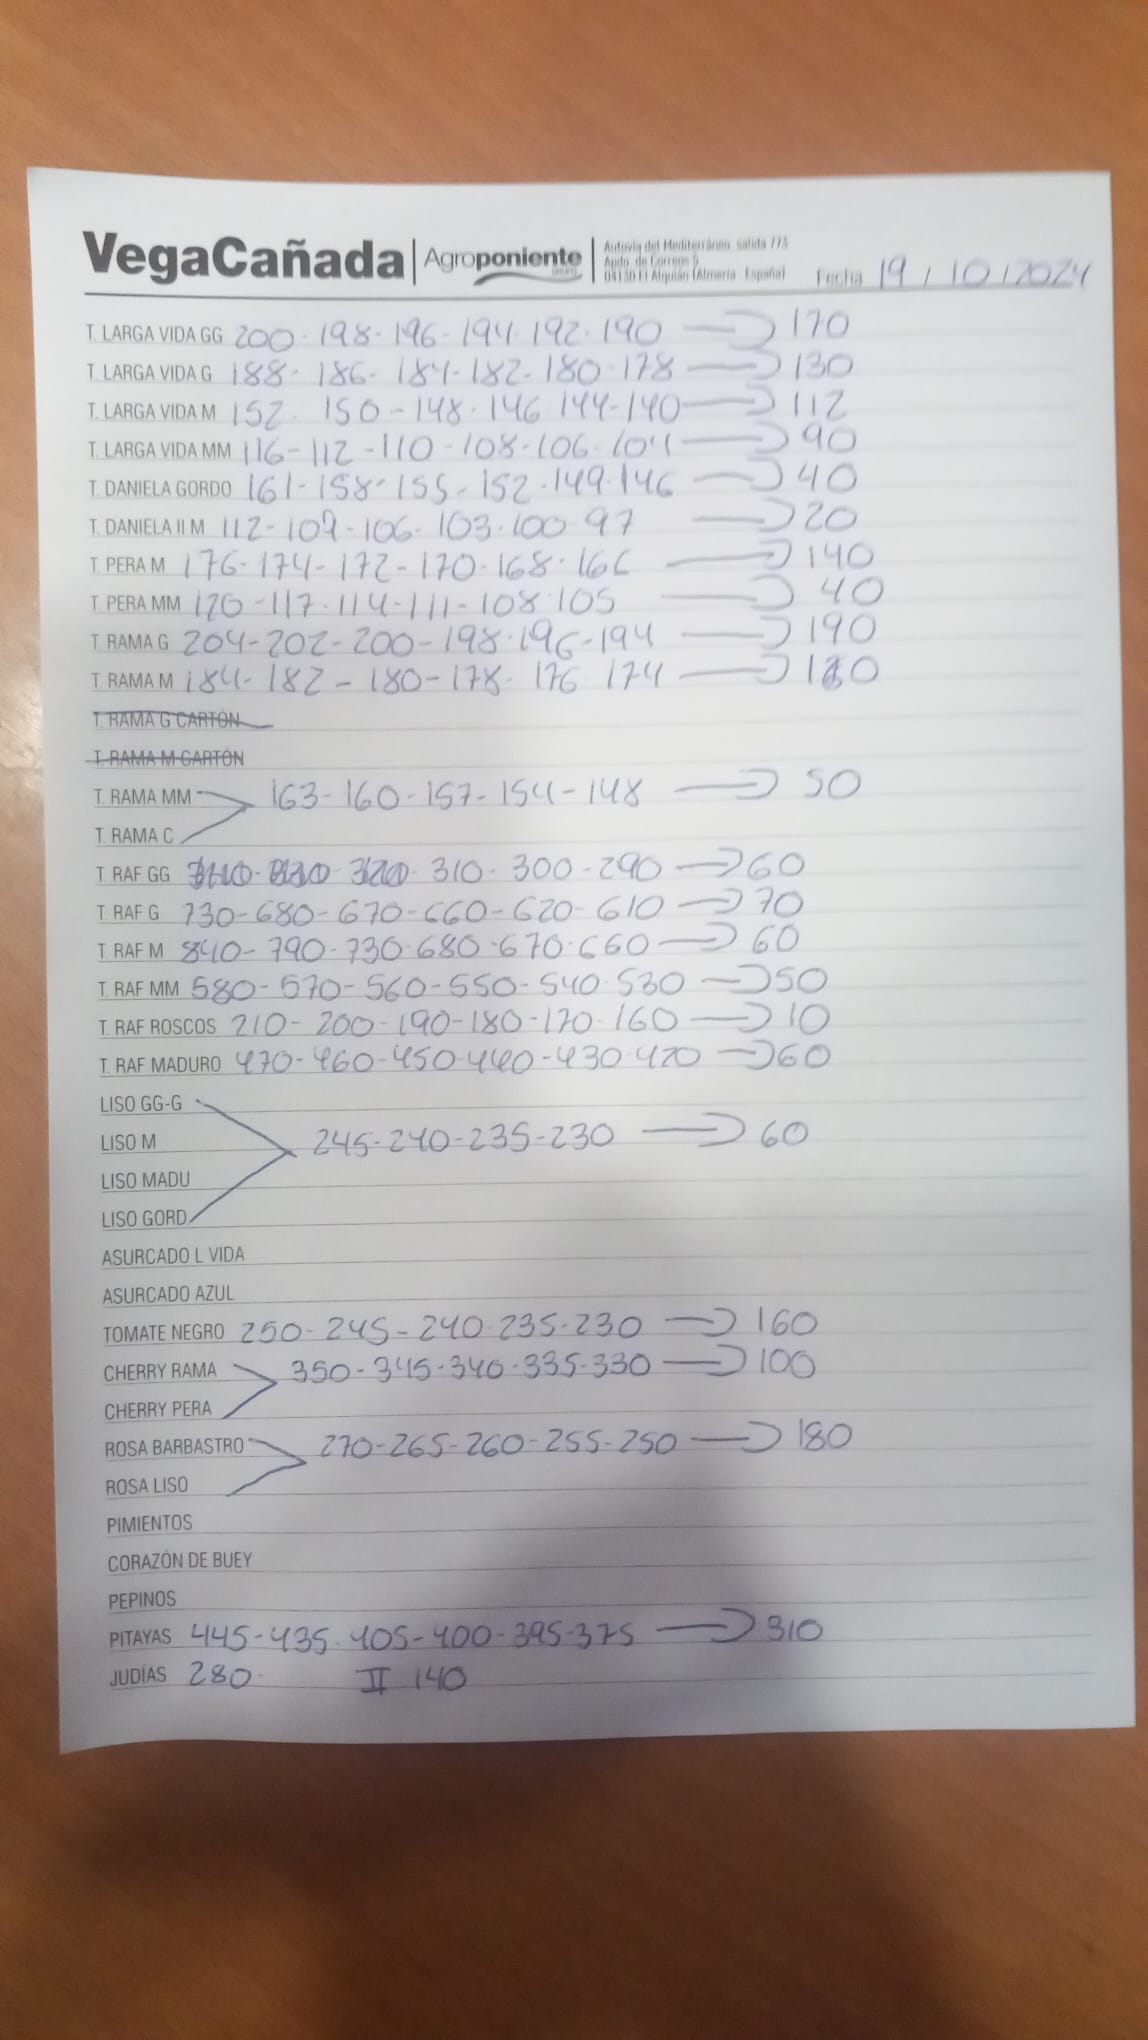 VegaCañada Agroponiente Autovía del Mediterráneo, salida 773
Apdo. de Correos 5
04130 El Alquián (Almería - España)
Fecha 19/10/2024
T. LARGA VIDA GG 200-198-196-194-192-190 → 170
T. LARGA VIDA G 188-186-184-182-180-178 → 130
T. LARGA VIDA M 152-150-148-146-144-140 → 112
T. LARGA VIDA MM 116-112-110-108-106-104 → 90
T. DANIELA GORDO 161-158-155-152-149-146 → 40
T. DANIELA II M 112-109-106-103-100-97 → 20
T. PERA M 176-174-172-170-168-166 → 140
T. PERA MM 120-117-114-111-108-105 → 40
T. RAMA G 204-202-200-198-196-194 → 190
T. RAMA M 184-182-180-178-176-174 →
T. RAMA G CARTÓN
T. RAMA M CARTÓN
T. RAMA MM 163-160-157-154-148 → 50
T. RAMA C
T. RAF GG 320-310-300-290 → 60
T. RAF G 730-680-670-660-620-610 → 70
T. RAF M 840-790-730-680-670-660 → 60
T. RAF MM 580-570-560-550-540-530 → 50
T. RAF ROSCOS 210-200-190-180-170-160 → 10
T. RAF MADURO 470-460-450-440-430-420 → 60
LISO GG-G
LISO M 245-240-235-230 → 60
LISO MADU
LISO GORD
ASURCADO L VIDA
ASURCADO AZUL
TOMATE NEGRO 250-245-240-235-230 → 160
CHERRY RAMA 350-345-340-335-330 → 100
CHERRY PERA
ROSA BARBASTRO 270-265-260-255-250 → 180
ROSA LISO
PIMIENTOS
CORAZÓN DE BUEY
PEPINOS
PITAYAS 445-435-405-400-395-375 → 310
JUDÍAS 280- II 140